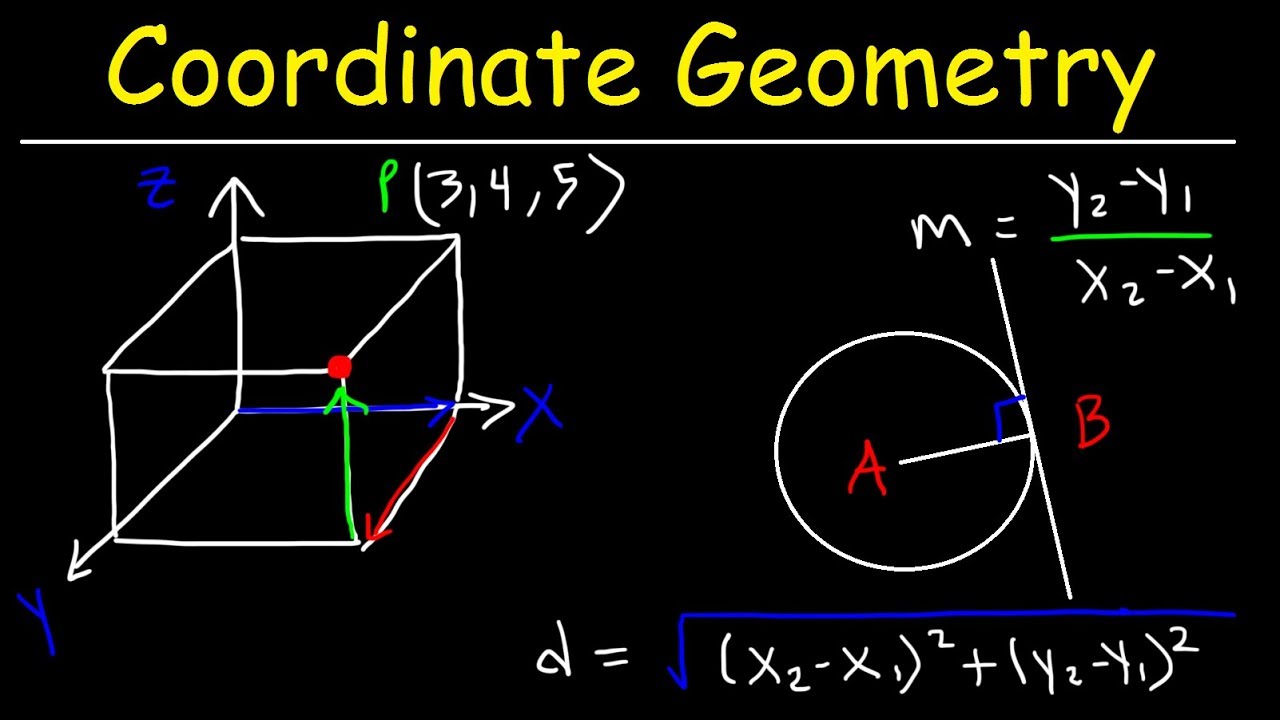 Coordinate Geometry
Z
P(3,4,5)
m = y₂-y₁
x₂-x₁
X
A
B
Y
d = √(x₂-x₁)²+(y₂-y₁)²